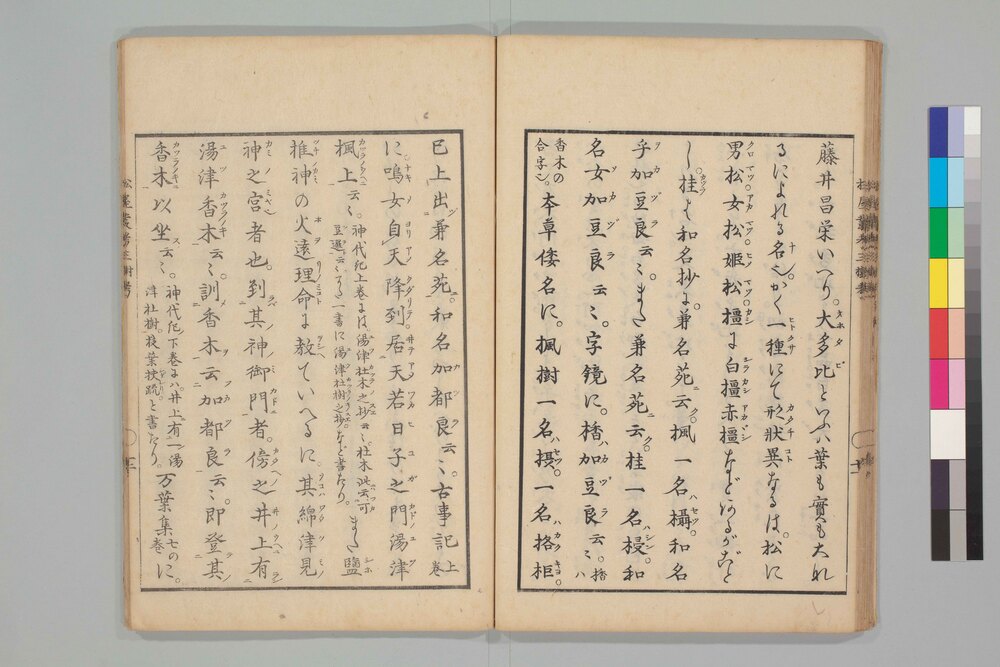 藤井昌栄いへり。大多比といふハ葉も實も大れ
るによれる名也。かく一種にて形狀異なるは。松に
男松女松姫松橿に白橿赤橿などあるがごと
し。桂は和名抄に。兼名苑云。楓一名欇。和名
乎加豆良云〻。また兼名苑云。桂一名梫。和
名女加豆良云〻。字鏡に。㮡加豆良云〻。㮡ハ
香木の合字也。本草倭名に。楓樹一名摂。一名格柜。
已上出兼名苑。和名加都良云〻。古事記上巻
に鳴女自天降到。居天若日子之門湯津
楓上云〻。神代紀上巻には。湯津杜木之抄云〻。杜木此云可豆邏云〻。また一書に湯津杜樹之抄。など書たり。また鹽
椎神の火遠理命に教ていへるに。其綿津見
神之宮者也。到其神御門者。傍之井上有
湯津香木云〻。訓香木云加都良云〻。即登其
香木以坐云〻。神代紀下巻にハ。井上有一湯津杜樹。枝葉扶疏。と書たり。万葉集七の巻に。